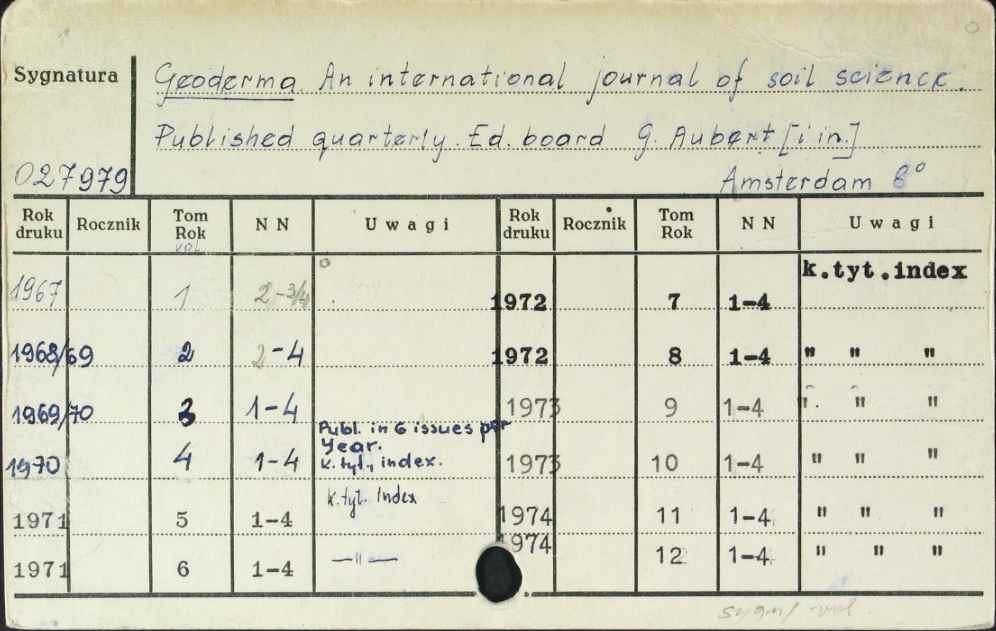 Sygnatura Geoderma. An international journal of soil science.
Published quarterly. Ed. board G. Aubert [i in.]
027979 Amsterdam 8°
Rok druku Rocznik Tom Rok N N Uwagi Rok druku Rocznik Tom Rok N N Uwagi
vol.
k.tyt.index
1967 1 2-3/4 1972 7 1-4
1968/69 2 2-4 1972 8 1-4 " " "
1969/70 3 1-4 1973 9 1-4 " " "
Publ. in 6 issues per
Year.
1970 4 1-4 k.tyt., index. 1973 10 1-4 " " "
k.tyt. Index
1971 5 1-4 1974 11 1-4 " " "
1971 6 1-4 —"— 1974 12 1-4 " " "
sygn/ vol.